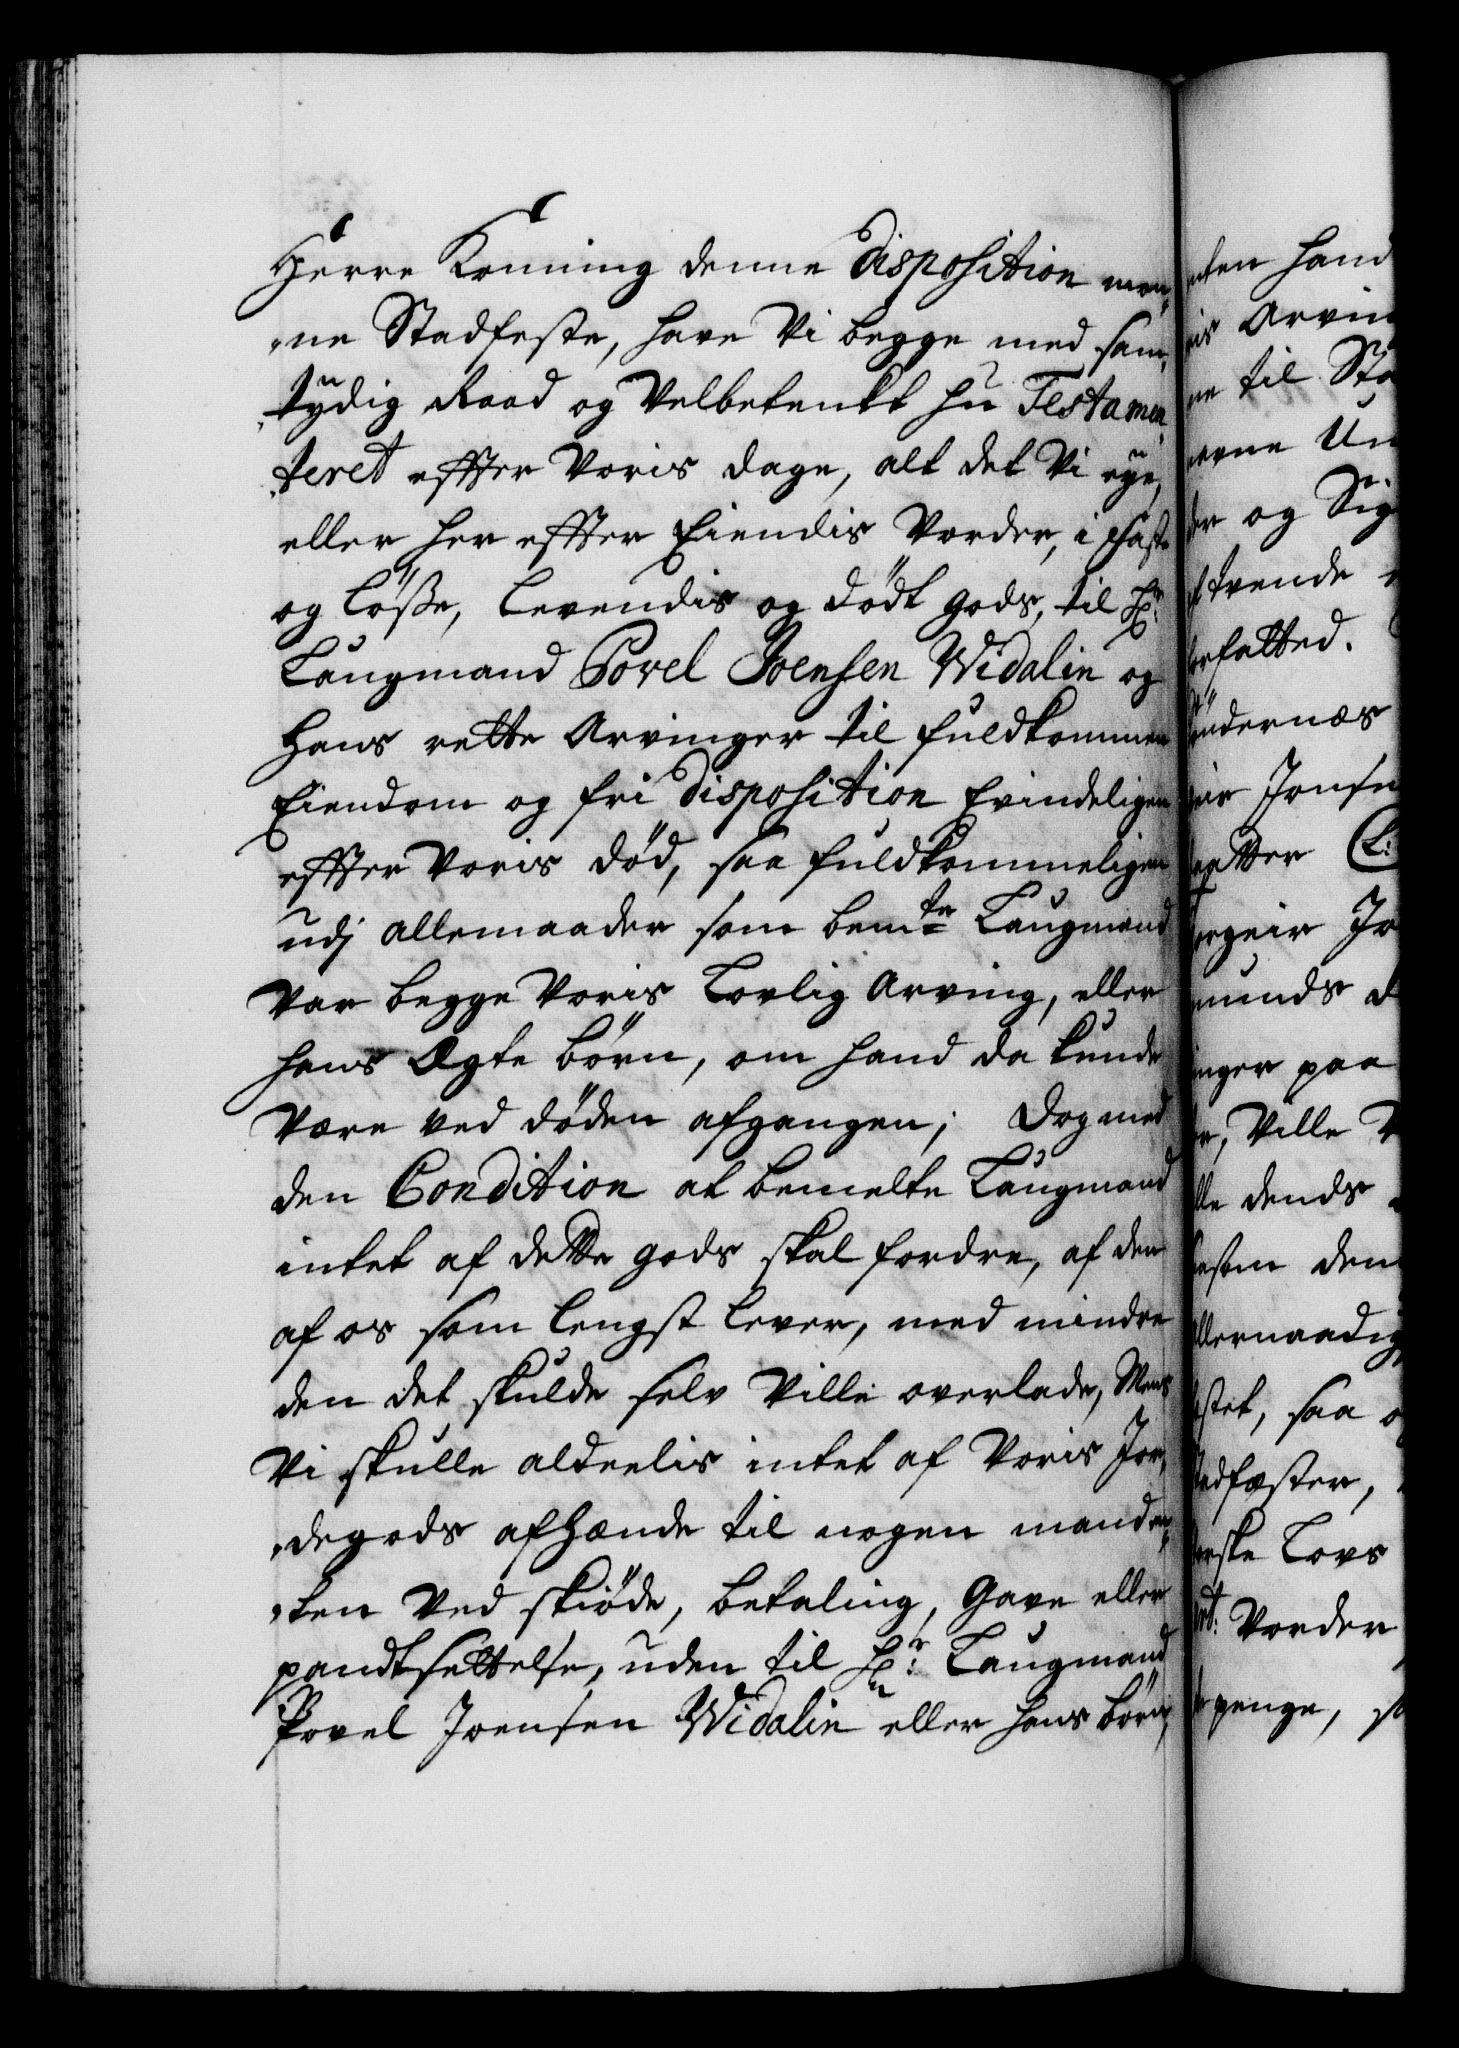 Herre Konning denne disposition mon„
„ne Stadfeste, have Vi begge med sam„
„tydig Raad og Velbetenkt hu Testamen„
„teret effter Voris dage, alt det Vi eye,
eller her effter Eiendis Vorder, i fast
og Løsse, Levendis og dødt gods, til Hr:
Laugmand Povel Joensen Widalin og
hans rette Arvinger til fuldkommen
Eiendom og fri disposition Evindeligen
effter Voris død, saa fuldkommeligen
udj allemaader som bemte Laugmand
Var begge Voris Lovlig Arving, eller
hans Ægte børn, om hand da kunde
Være ved døden afgangen; Dog med
den Condition at bemelte Laugmand
intet af dette gods skal fordre, af den
af os som lengst lever, med mindre
den det skulde selv Ville overlade, Mens
Vi skulle aldeelis intet af Voris Jor„
„degods afhænde til nogen mand en„
„ten Ved skiøde, betaling, Gave eller
pandtsettelse, uden til Hr: Laugmand
Povel Joensen Widalin eller hans børn,
nten hand
is Arvin
ne til Sta
erne Un
der og Sig
trende
orfatted.
undernæs
eir Jonsen
aatter (L:
orgeir Jo
munds d
inger paa
r, Ville V
lle dends
esom den
llernaadig
stet, saa o
tadfæster,
orske Lovs
rt: Vorder
penge, so